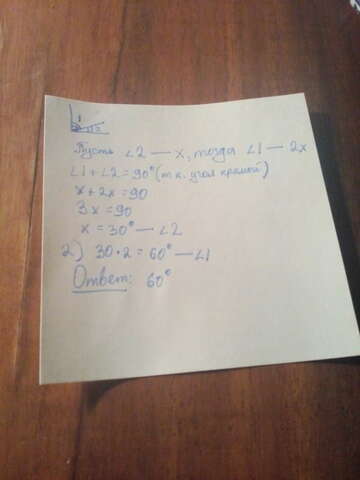 1
2
Пусть ∠2 — x, тогда ∠1 — 2x
∠1 + ∠2 = 90° (т.к. угол прямой)
x + 2x = 90
3x = 90
x = 30° — ∠2
2) 30 · 2 = 60° — ∠1
Ответ: 60°